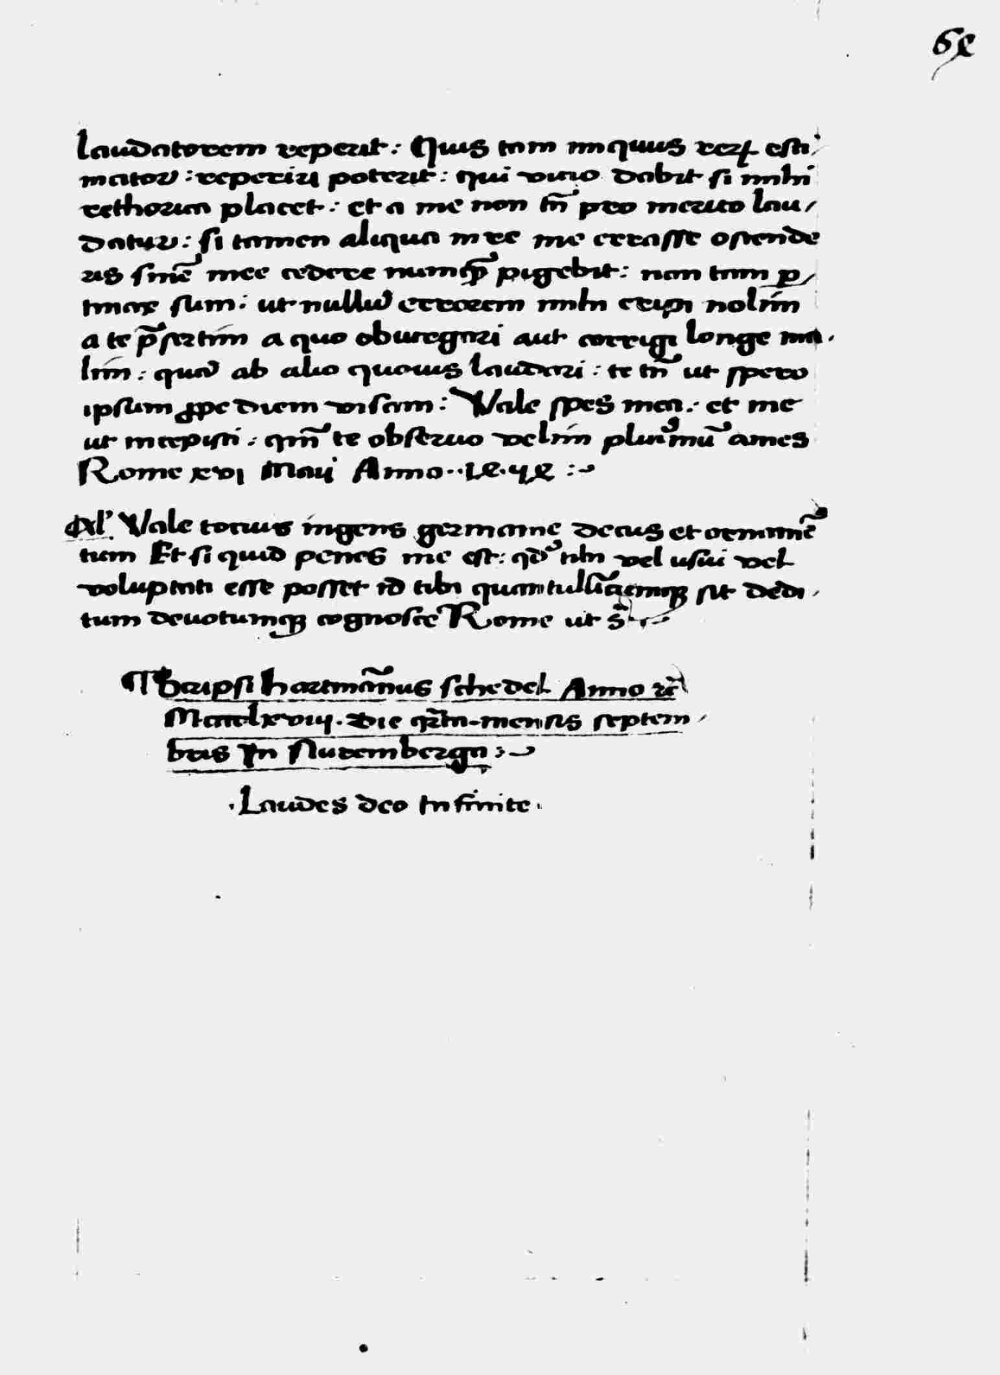 laudatorem reperit: Quis tam iniquus rerꝝ esti
mator: reperiri poterit: qui vicio dabit si mihi
rethorica placet: et a me non tm̄ pro merito lau/
datur: si tamen aliqua in re me errasse ostende
ris sniē mee cedere numqꝫ pigebit: non tam ꝑ
tinax sum: ut nullū errorem mihi eripi nolim
a te p̄sertim a quo obiurgari aut corrigi longe ma
lim: quā ab alio quouis laudari: te tn̄ ut spero
ipsum ꝓpe diem visam: Vale spes mea: et me
ut incepisti: qm̄ te obseruo velim plurimū ames
Rome xvi Maij Anno
Vale tocius ingens germanie decus et ornamē
tum Et si quid penes me est: qd̓ tibi vel usui vel
voluptati esse posset id tibi quantullūcumqꝫ sit dedi
tum deuotumqꝫ cognosce Rome ut s̄
¶ Scripsi hartmānus schedel Anno
Mcccclxviij. die q̄rta mensis septem
bris In Nuremberga
Laudes deo Infinite.